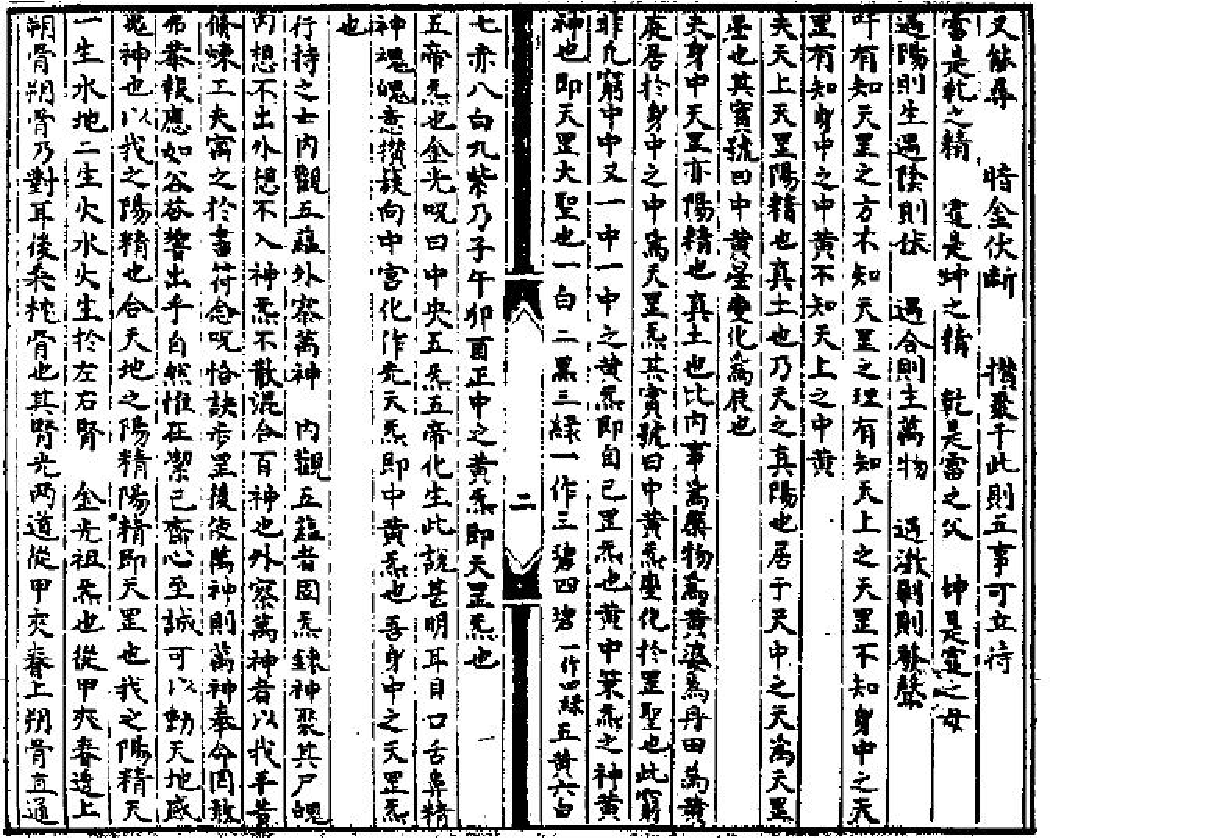 又能尋 時金伏斷 攢聚于此則五事可立待
雷是乾之精 霆是坤之精 乾是雷之父 坤是霆之母
遇陽則生遇陰則伏 遇合則生萬物 遇激剝則發聲
吁有知天罡之方不知天罡之理有知天上之天罡不知身中之天
罡有知身中之中黃不知天上之中黃
夫天上天罡陽精也真土也乃天之真陽也居于天中之天為天罡
星也其寶號曰中黃星變化為辰也
夫身中天罡亦陽精也真土也比內事為藥物為黃婆為丹田為黃
庭居於身中之中為天罡炁其寶號曰中黃炁變化於罡聖也此竅
非凡竅中中又一中一中之黃炁即自己罡炁也黃中葉炁之神黃
神也即天罡大聖也一白二黑三綠一作三碧四碧一作四綠五黃六白
二
七赤八白九紫乃子午卯酉正中之黃炁即天罡炁也
五帝炁也金光呪曰中央五炁五帝化生此說甚明耳目口舌鼻精
神魂魄意攢簇向中宮化作先天炁即中黃炁也吾身中之天罡炁
也
行持之士內觀五蘊外察萬神 內觀五蘊者固炁鍊神聚其尸魄
內想不出外想不入神炁不散混合百神也外察萬神者以我平昔
修煉工夫寓之於書符念呪恰訣步罡役使萬神則萬神奉令因敬
而恭報應如谷答響出乎自然惟在潔己齋心至誠可以動天地感
鬼神也以我之陽精也合天地之陽精陽精即天罡也我之陽精天
一生水地二生火水火生於左右腎 金光祖炁也從甲夾脊邊上
朔骨朔骨乃對耳後枕骨也其腎光兩道從甲夾脊上朔骨直通